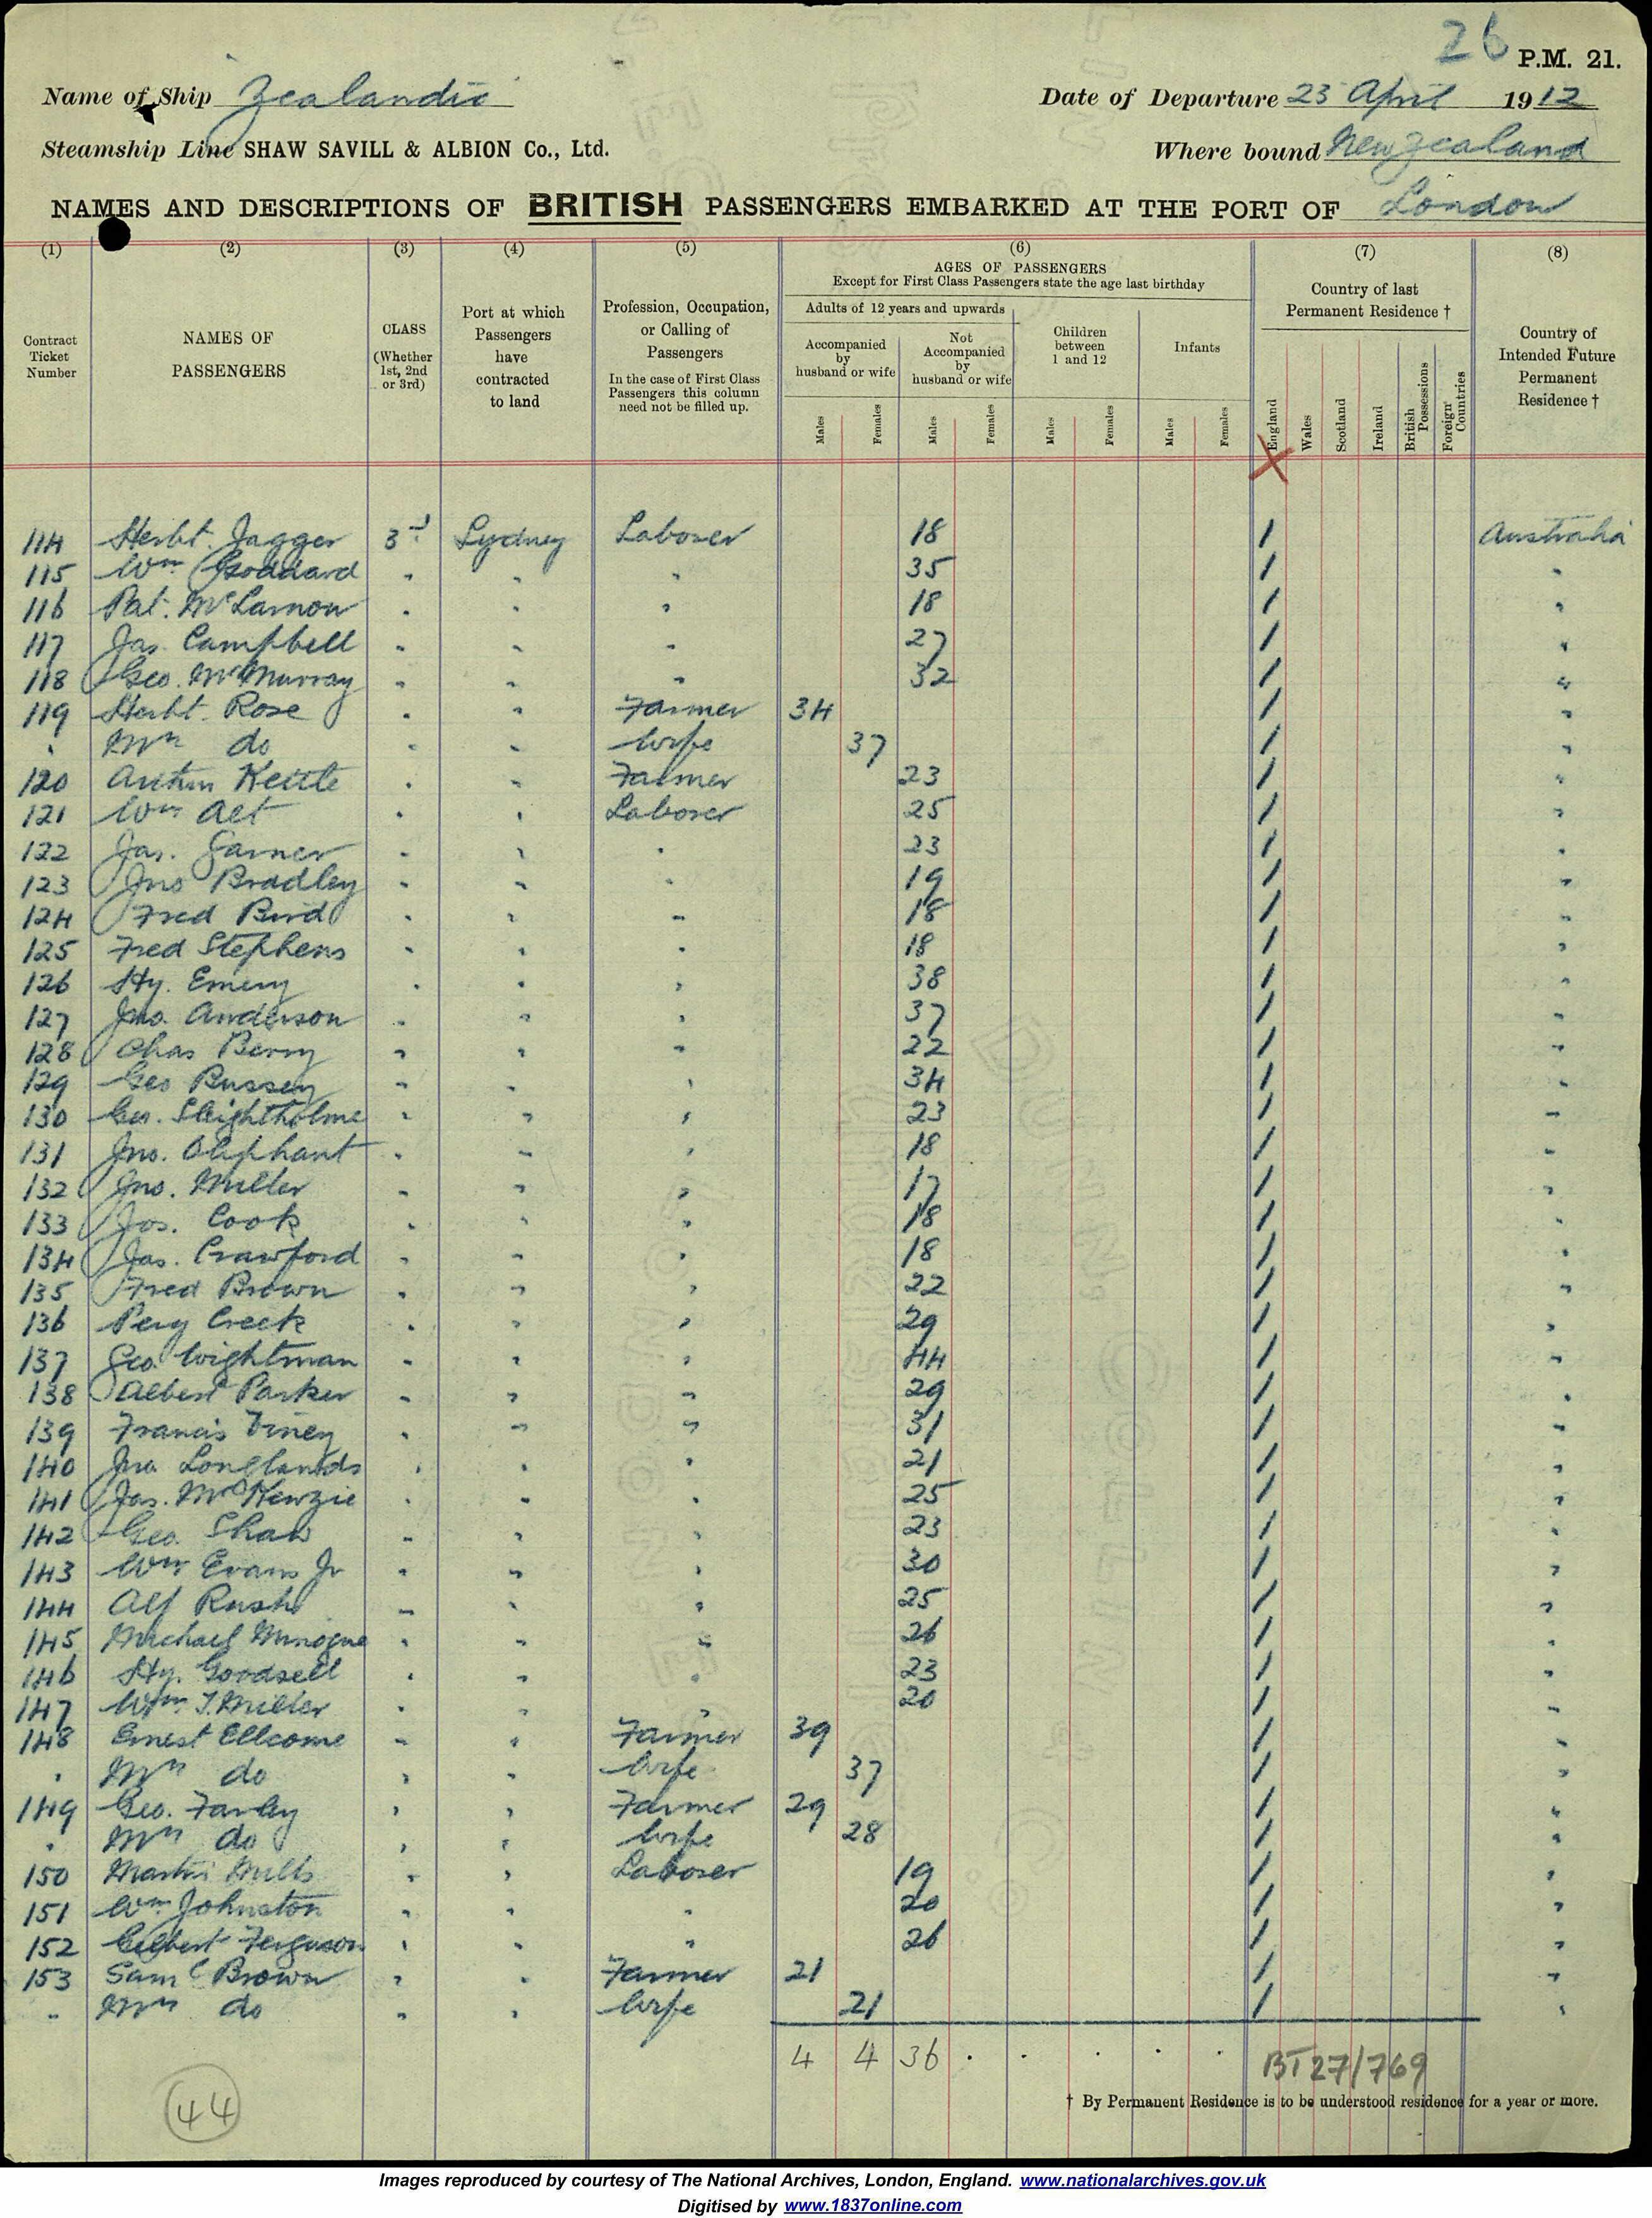 26 P.M. 21.
Name of Ship Zealandic Date of Departure 23 April 1912
Steamship Line SHAW SAVILL & ALBION Co., Ltd. Where bound New Zealand
NAMES AND DESCRIPTIONS OF BRITISH PASSENGERS EMBARKED AT THE PORT OF London
(1) (2) (3) (4) (5) (6) (7) (8)
Contract Ticket Number
NAMES OF PASSENGERS
CLASS (Whether 1st, 2nd or 3rd)
Port at which Passengers have contracted to land
Profession, Occupation, or Calling of Passengers
In the case of First Class Passengers this column need not be filled up.
AGES OF PASSENGERS
Except for First Class Passengers state the age last birthday
Adults of 12 years and upwards
Accompanied by husband or wife
Not Accompanied by husband or wife
Children between 1 and 12
Infants
Males Females Males Females Males Females Males Females
Country of last Permanent Residence †
England Wales Scotland Ireland British Possessions Foreign Countries
Country of Intended Future Permanent Residence †
X
114 Herbt. Jagger 3rd Sydney Laborer 18 / Australia
115 Wm Goddard " " " 35 / "
116 Pat. McLarnon " " " 18 / "
117 Jas. Campbell " " " 27 / "
118 Geo. McMurray " " " 32 / "
119 Herbt. Rose " " Farmer 34 / "
" Mrs do " " Wife 37 / "
120 Arthur Kettle " " Farmer 23 / "
121 Wm Alt " " Laborer 25 / "
122 Jas. Garner " " " 23 / "
123 Jno Bradley " " " 19 / "
124 Fred Bird " " " 18 / "
125 Fred Stephens " " " 18 / "
126 Hy. Emery " " " 38 / "
127 Jno. Anderson " " " 37 / "
128 Chas Berry " " " 22 / "
129 Geo Bussey " " " 34 / "
130 Geo. Sleightholme " " " 23 / "
131 Jno. Oliphant " " " 18 / "
132 Jno. Miller " " " 17 / "
133 Jos. Cook " " " 18 / "
134 Jas. Crawford " " " 18 / "
135 Fred Brown " " " 22 / "
136 Percy Creek " " " 29 / "
137 Geo. Wightman " " " 44 / "
138 Albert Parker " " " 29 / "
139 Francis Viney " " " 31 / "
140 Jno. Longlands " " " 21 / "
141 Jas. McKenzie " " " 25 / "
142 Geo. Shaw " " " 23 / "
143 Wm Evans Jr " " " 30 / "
144 Alf Rush " " " 25 / "
145 Michael Minogue " " " 26 / "
146 Hy. Goodsell " " " 23 / "
147 Wm J. Miller " " " 20 / "
148 Ernest Ellcome " " Farmer 39 / "
" Mrs do " " Wife 37 / "
149 Geo. Farley " " Farmer 29 / "
" Mrs do " " Wife 28 / "
150 Martin Mills " " Laborer 19 / "
151 Wm Johnston " " " 20 / "
152 Gilbert Ferguson " " " 26 / "
153 Saml Brown " " Farmer 21 / "
" Mrs do " " Wife 21 / "
4 4 36 . . . . . BT 27/769
† By Permanent Residence is to be understood residence for a year or more.
44
Images reproduced by courtesy of The National Archives, London, England. www.nationalarchives.gov.uk
Digitised by www.1837online.com